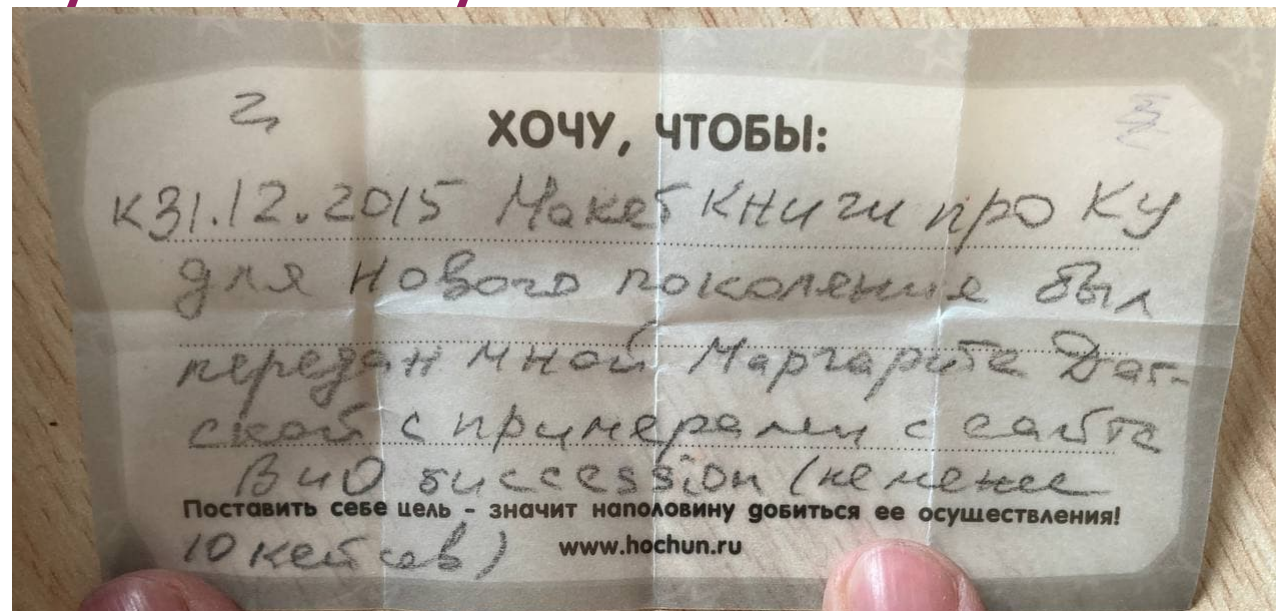 2
ХОЧУ, ЧТОБЫ:
к 31.12.2015 Макет Книги про КУ
для нового поколения был
передан мной Маргарите Дат-
ской с примерами с сайта
succession (не менее
Поставить себе цель - значит наполовину добиться ее осуществления!
10 кейсов)
www.hochun.ru